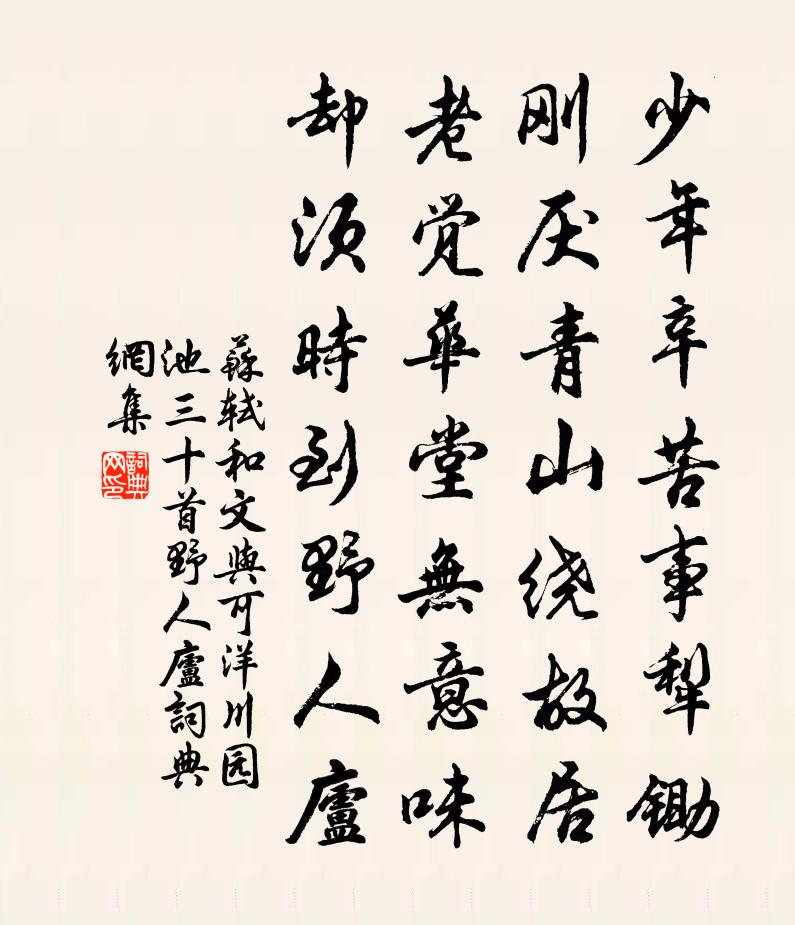 少年辛苦事犁锄
刚厌青山绕故居
老觉华堂無意味
却须時到野人廬
蘇轼和文與可洋川园
池三十首野人廬詞典
網集
詞典
网印